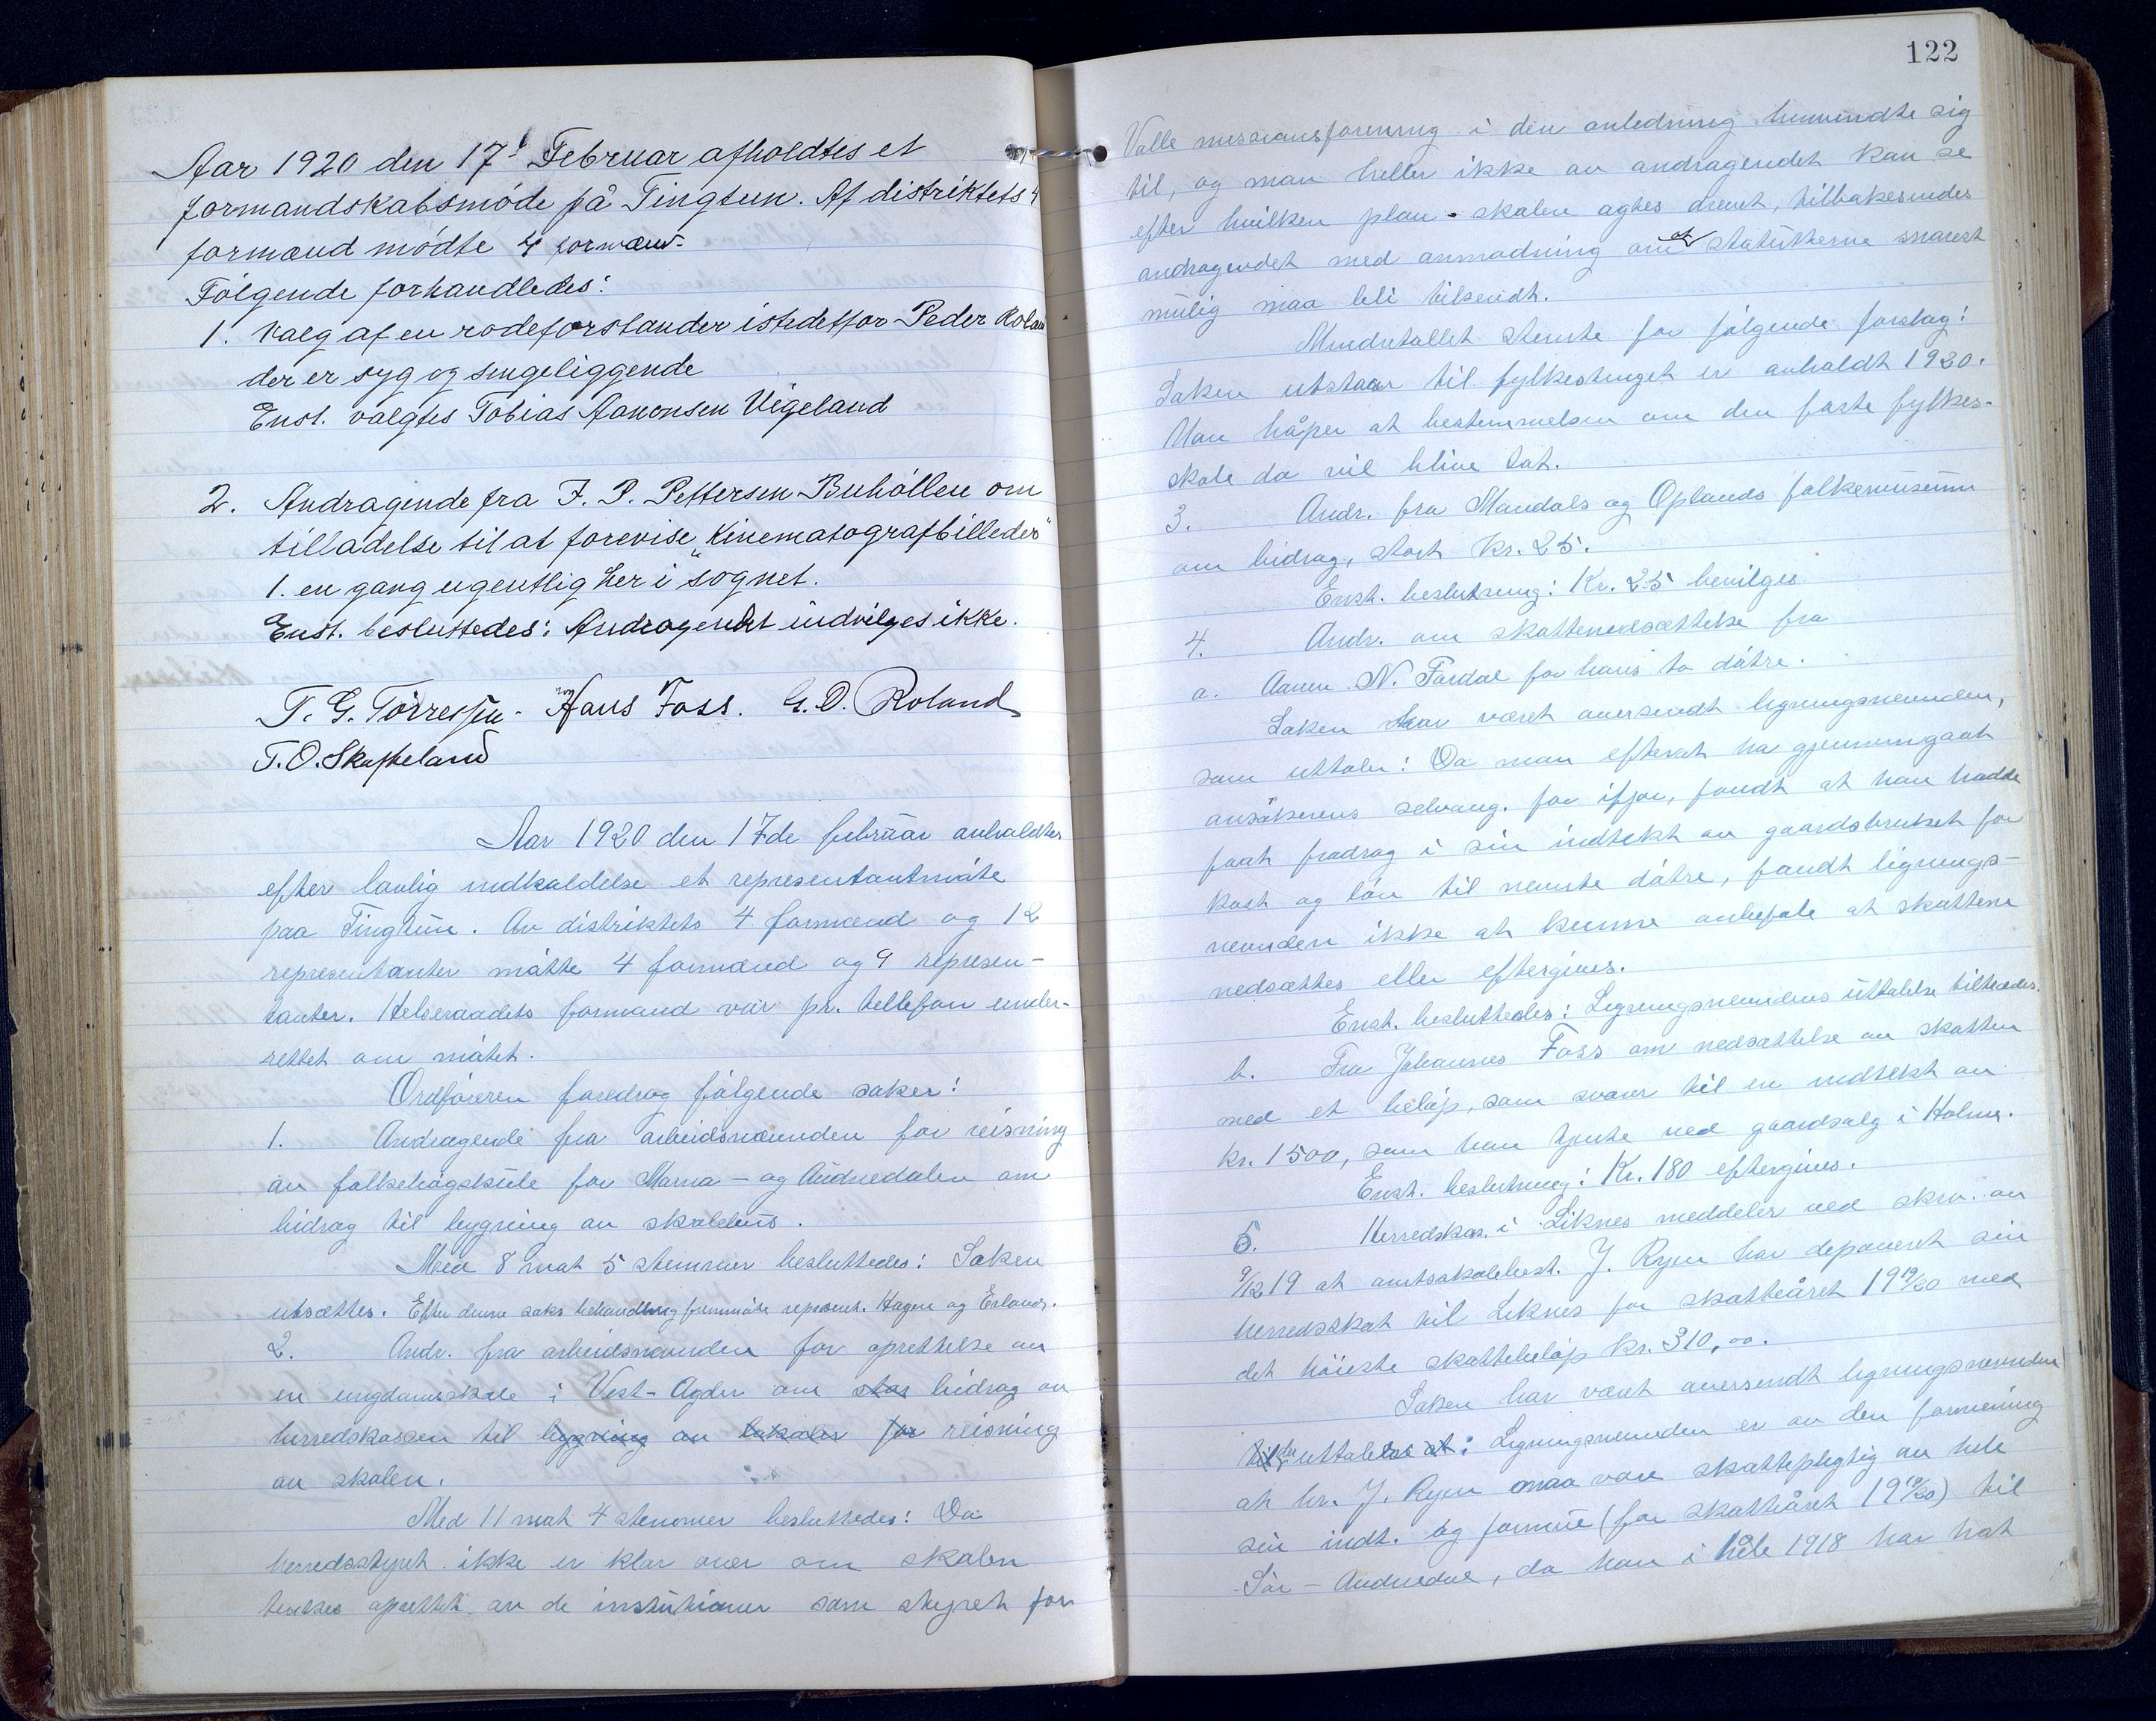 Aar 1920 den 17d Februar afholdtes et
formandskabsmøde på Tingtun. Af distriktets 4
formænd mødte 4 formænd.
Følgende forhandledes:
1. Valg af en rodeforstander istedetfor Peder Roland
der er syg og sengeliggende
Enst. valgtes Tobias Aanonsen Vigeland
2. Andragende fra J. P. Pettersen Buhöllen om
tilladelse til at forevise "Kinematografbilleder"
1. en gang ugentlig her i sognet.
Enst. besluttedes: Andragendet indvilges ikke.
T. G. Tørressen. Hans Foss. G. O. Roland
T. O. Skofteland
Aar 1920 den 17de februar avholdtes
efter lovlig indkaldelse et representantmøte
paa Tingtun. Av distriktets 4 formænd og 12
representanter møtte 4 formænd og 9 represen-
tanter. Helseraadets formand var pr. tellefon under-
rettet om møtet.
Ordføreren foredrog følgende saker:
1. Andragende fra arbeidsnævnden for reisning
av folkehøgskule for Marna- og Audnedalen om
bidrag til bygning av skolehus.
Med 8 mot 5 stemmer besluttedes: Saken
utsættes. Efter denne saks behandling fremmøtte represent. Hagen og Erlands.
2. Andr. fra arbeidsnævnden for oprettelse av
en ungdomsskole i Vest-Agder om stor bidrag av
herredskassen til bygning av lokaler for reisning
av skolen.
Med 11 mot 4 stemmer besluttedes: Da
herredsstyret ikke er klar over om skolen
tænkes oprettet av de institutioner som styret for
122
Valle missionsforening i den anledning henvendte sig
til, og man heller ikke av andragendet kan se
efter hvilken plan skolen agtes drevet, tilbakesendes
andragendet med anmodning om at statutterne snarest
mulig maa bli tilsendt.
Mindretallet stemte for følgende forslag:
Saken utstaar til fylkestinget er avholdt 1920.
Man håper at bestemmelsen om den faste fylkes-
skole da vil blive tat.
3. Andr. fra Mandals og Oplands folkemuseum
om bidrag, stort kr. 25.
Enst. beslutning: Kr. 25 bevilges.
4. Andr. om skattenedsættelse fra
a. Aanen N. Fardal for hans to døtre.
Saken har været oversendt ligningsnevnden,
som uttaler: Da man efterat ha gjennemgaat
ansøkerens selvang. for ifjor, fandt at han hadde
faat fradrag i sin indtekt av gaardsbruket for
kost og løn til nevnte døtre, fandt lignings-
nevnden ikke at kunne anbefale at skattene
nedsættes eller eftergives.
Enst. besluttedes: Ligningsnevndens uttalelse tiltrædes.
b. Fra Johannes Foss om nedsættelse av skatten
med et beløp, som svarer til en indtekt av
kr. 1500, som han tjente ved gaardsalg i Holme.
Enst. beslutning: Kr. 180 eftergives.
5. Herredskas. i Liknes meddeler ved skriv. av
9/12 19 at amtsskolebest. J. Ryen har deponeret sin
herredsskat til Liknes for skatteåret 1919/20 med
det høieste skattebeløp kr. 310,00.
Saken har været oversendt ligningsnevnden
der uttaler: Ligningsnevnden er av den formening
at hr. J. Ryen maa være skattepligtig av hele
sin indt. og formue (for skatteåret 1919/20) til
Sør-Audnedal, da han i hele 1918 har hat